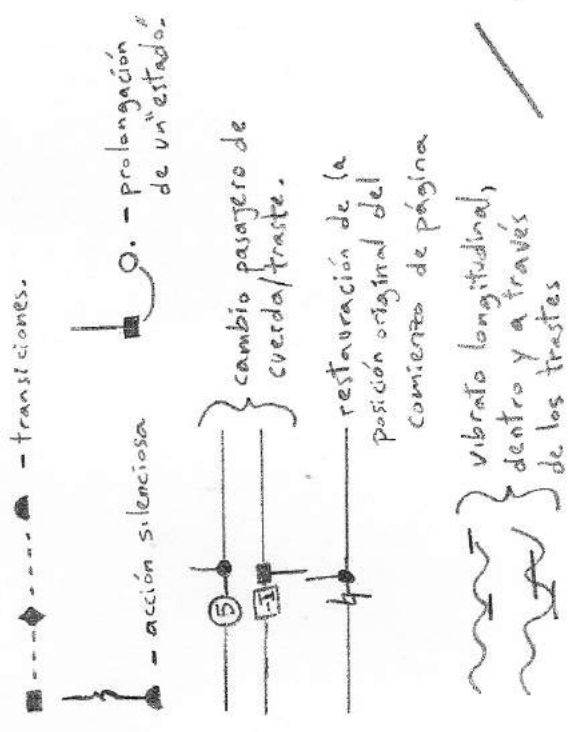 - transiciones.
- acción silenciosa
- prolongación
de un "estado."
5
-1
cambio pasajero de
cuerda/traste.
restauración de la
posición original del
comienzo de página
vibrato longitudinal,
dentro y a través
de los trastes